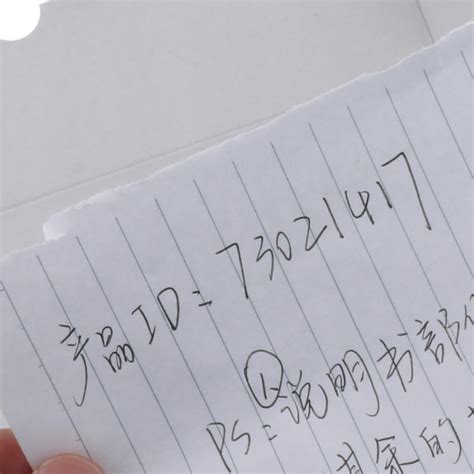 产品ID：73021417
PS：①说明书部
其余的